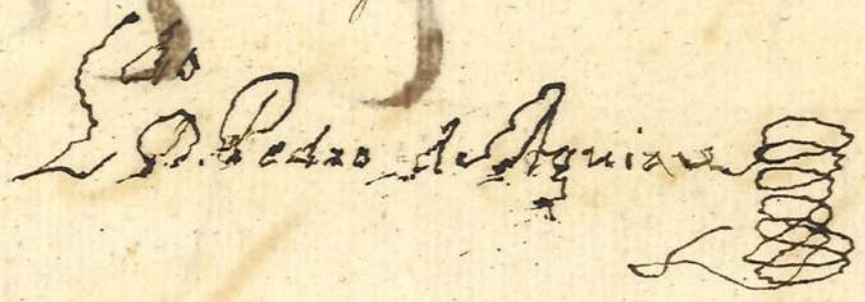 Ldo D. Pedro de Aguiar